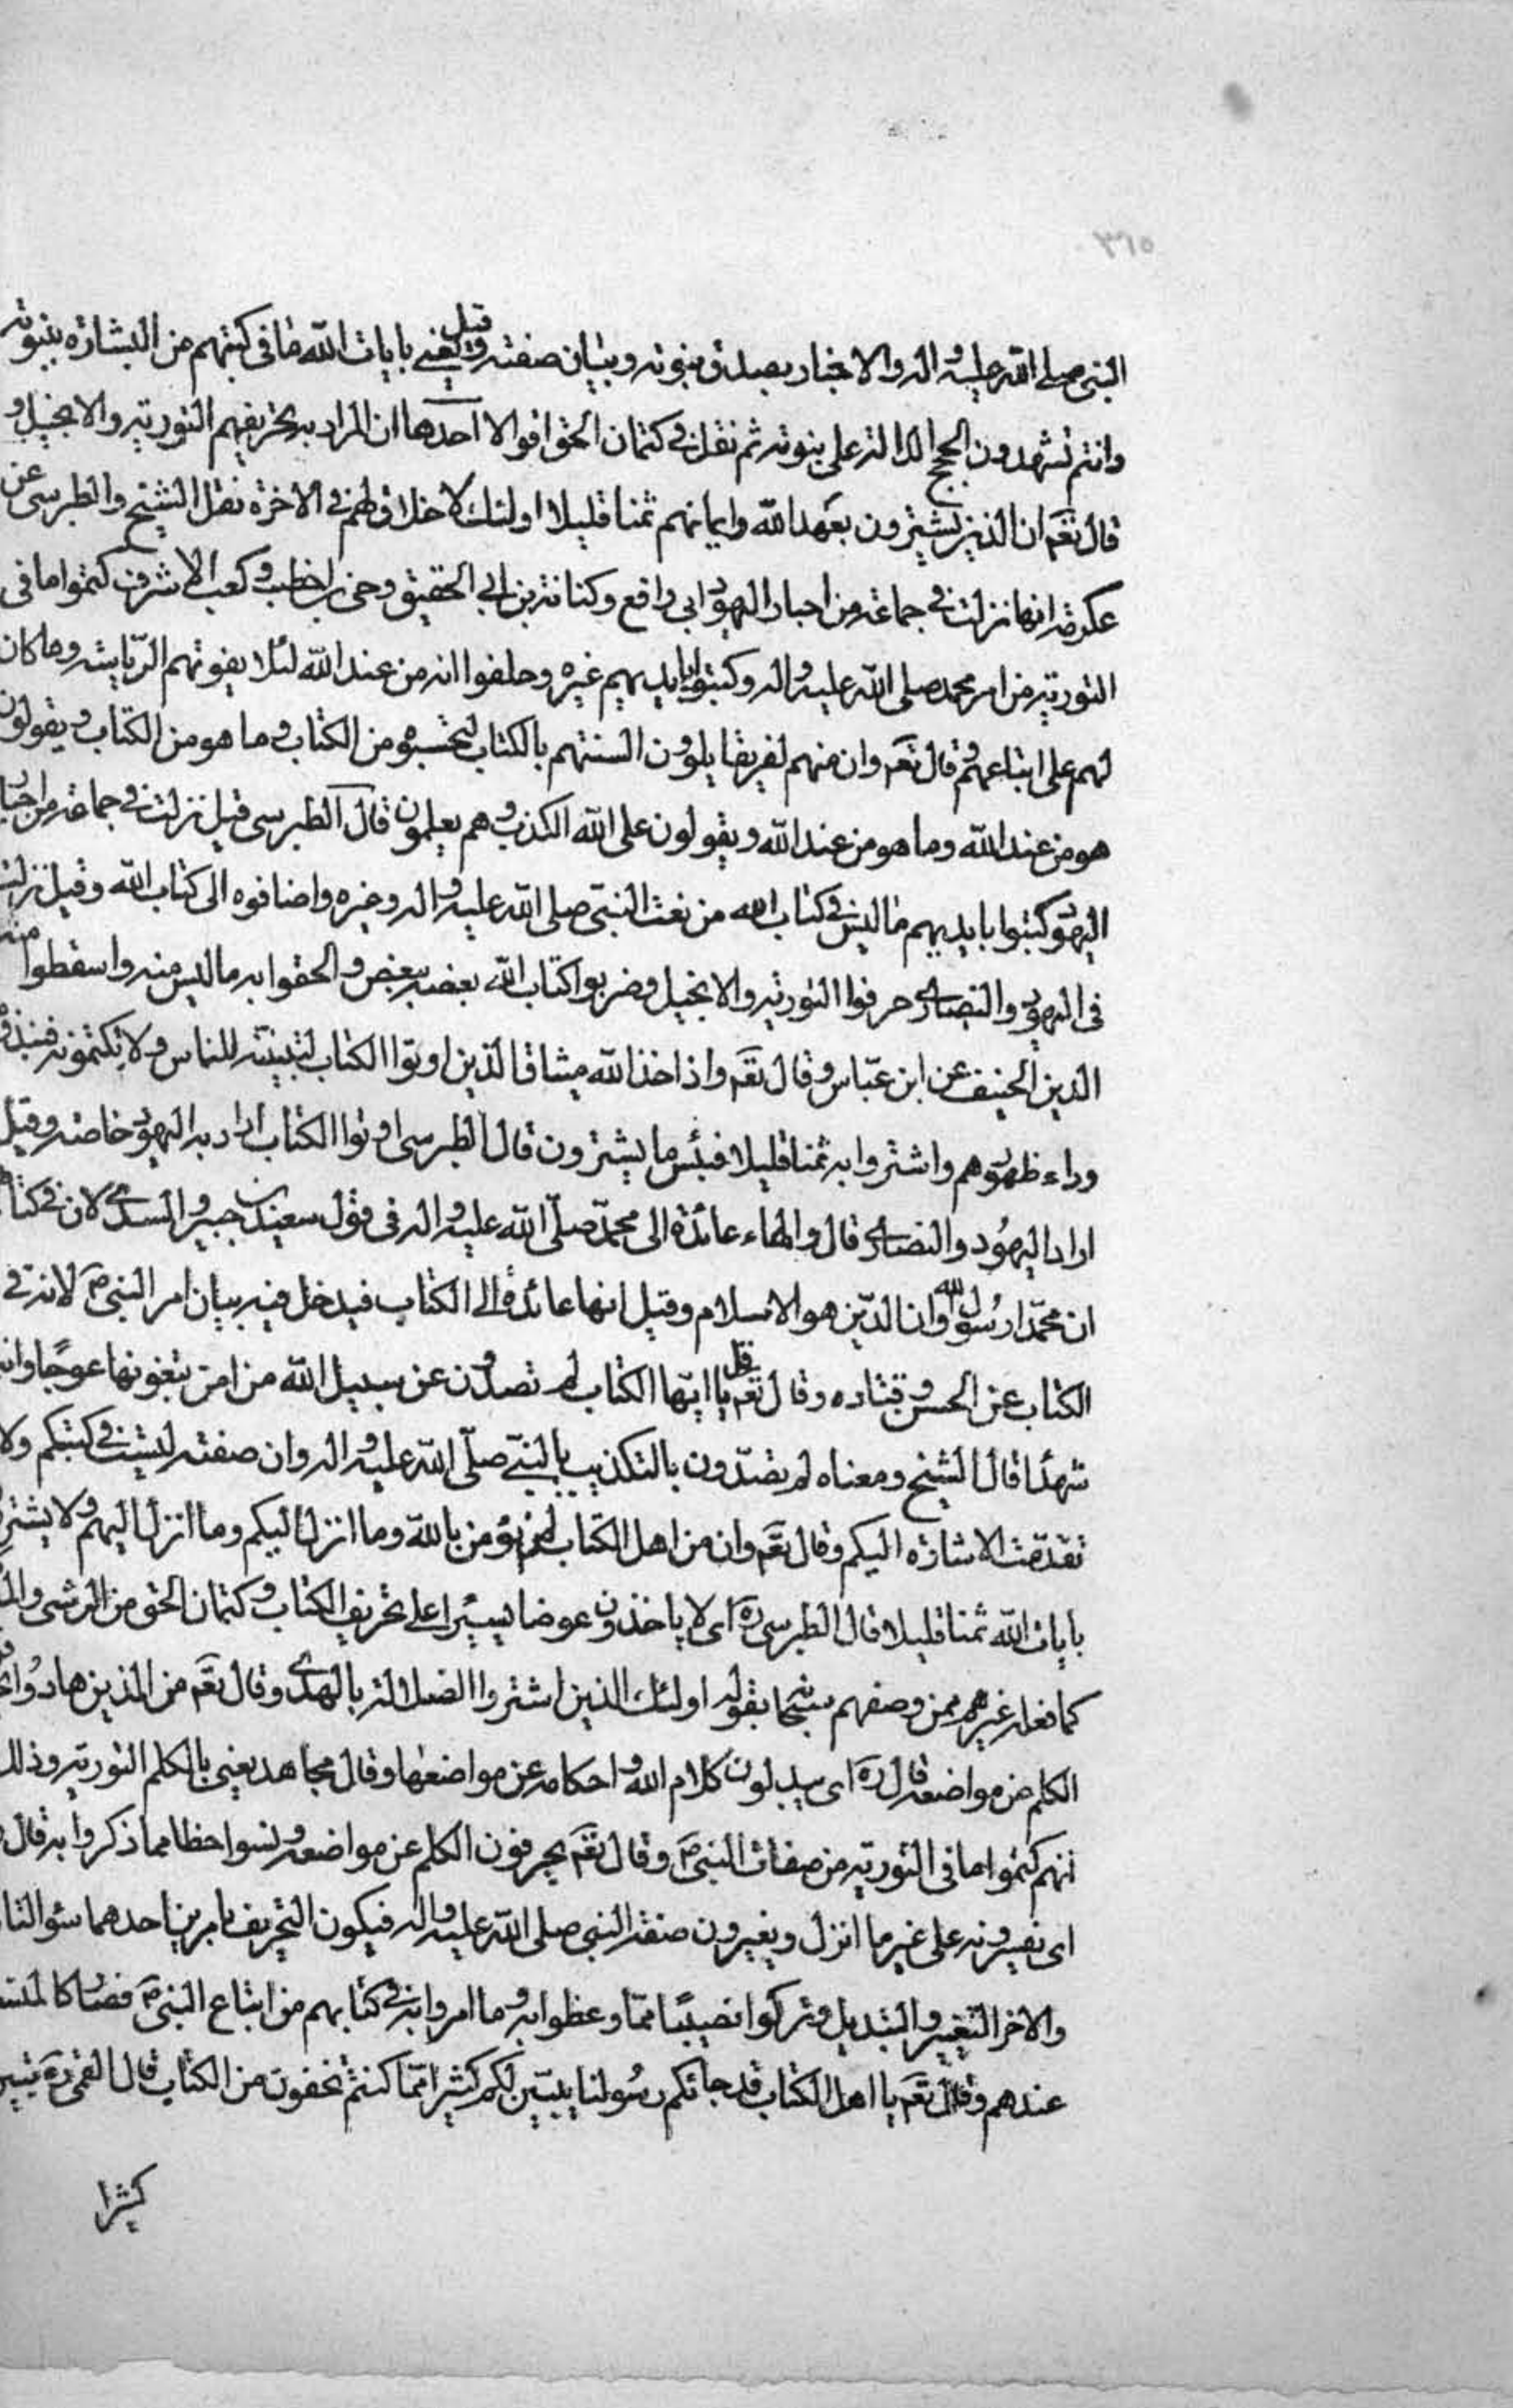 ٣٦٥
النبي صلى الله عليه واله والاخبار بصدق نبوته وبيان صفته وقيل يعنى بايات الله ما فى كتبهم من البشارة بنبوته
وانتم تشهدون الحجج الدالة على نبوته ثم نقل فى كتمان الحق اقوالا احدها ان المراد به تحريفهم التورية والانجيل و
قال تعم ان الذين يشترون بعهد الله وايمانهم ثمنا قليلا اولئك لا خلاق لهم فى الاخرة نقل الشيخ والطبرسى عن
عكرمة انها نزلت فى جماعة من احبار اليهود ابى رافع وكنانة بن ابى الحقيق وحى بن اخطب وكعب الاشرف كتموا ما فى
التورية من امر محمد صلى الله عليه واله وكتبوا بايديهم غيره وحلفوا انه من عند الله لئلا يفوتهم الرياسة وما كان
لهم على اتباعهم وقال تعم وان منهم لفريقا يلوون السنتهم بالكتاب لتحسبوه من الكتاب وما هو من الكتاب ويقولون
هو من عند الله وما هو من عند الله ويقولون على الله الكذب وهم يعلمون قال الطبرسى قيل نزلت فى جماعة من احبار
اليهود كتبوا بايديهم ما ليس فى كتاب الله من نعت النبى صلى الله عليه واله وغيره واضافوه الى كتاب الله وقيل نزلت
فى اليهود والنصارى حرفوا التورية والانجيل وضربوا كتاب الله بعضه ببعض والحقوا به ما ليس منه واسقطوا منه
الدين الحنيف عن ابن عباس وقال تعم واذ اخذ الله ميثاق الذين اوتوا الكتاب لتبيننه للناس ولا تكتمونه فنبذوه
وراء ظهورهم واشتروا به ثمنا قليلا فبئس ما يشترون قال الطبرسى اوتوا الكتاب اراد به اليهود خاصة وقيل
اراد اليهود والنصارى قال والهاء عائدة الى محمد صلى الله عليه واله فى قول سعيد بن جبير والسدى لان فى كتابهم
ان محمدا رسول الله وان الدين هو الاسلام وقيل انها عائدة الى الكتاب فيدخل فيه بيان امر النبى ص لانه فى
الكتاب عن الحسن وقتاده وقال تعم قل يا ايها الكتاب لم تصدون عن سبيل الله من امن تبغونها عوجا وانتم
شهدا قال الشيخ ومعناه لم تصدون بالتكذيب بالنبى صلى الله عليه واله وان صفته ليست فى كتبكم ولا
تقدمت الاشارة اليكم وقال تعم وان من اهل الكتاب لمن يؤمن بالله وما انزل اليكم وما انزل اليهم ولا يشترون
بايات الله ثمنا قليلا قال الطبرسى ره اى لا ياخذون عوضا يسيرا على تحريف الكتاب وكتمان الحق من الرشى
كما فعله غيرهم ممن وصفهم سبحانه بقوله اولئك الذين اشتروا الضلالة بالهدى وقال تعم من الذين هادوا يحرفون
الكلم عن مواضعه قال ره اى يبدلون كلام الله واحكامه عن مواضعها وقال مجاهد يعنى بالكلم التورية وذلك
انهم كتموا ما فى التورية من صفات النبى ص وقال تعم يحرفون الكلم عن مواضعه ونسوا حظا مما ذكروا به قال
اى يفسرونه على غير ما انزل ويغيرون صفة النبى صلى الله عليه واله فيكون التحريف بامرين احدهما سؤ التا
والاخر التغيير والتبديل وتركوا نصيبا مما وعظوا به وما امروا به فى كتابهم من اتباع النبى ص فصار كالمنسى
عندهم وقال تعم يا اهل الكتاب قد جائكم رسولنا يبين لكم كثيرا مما كنتم تخفون من الكتاب قال القمى ره يبين
كثيرا